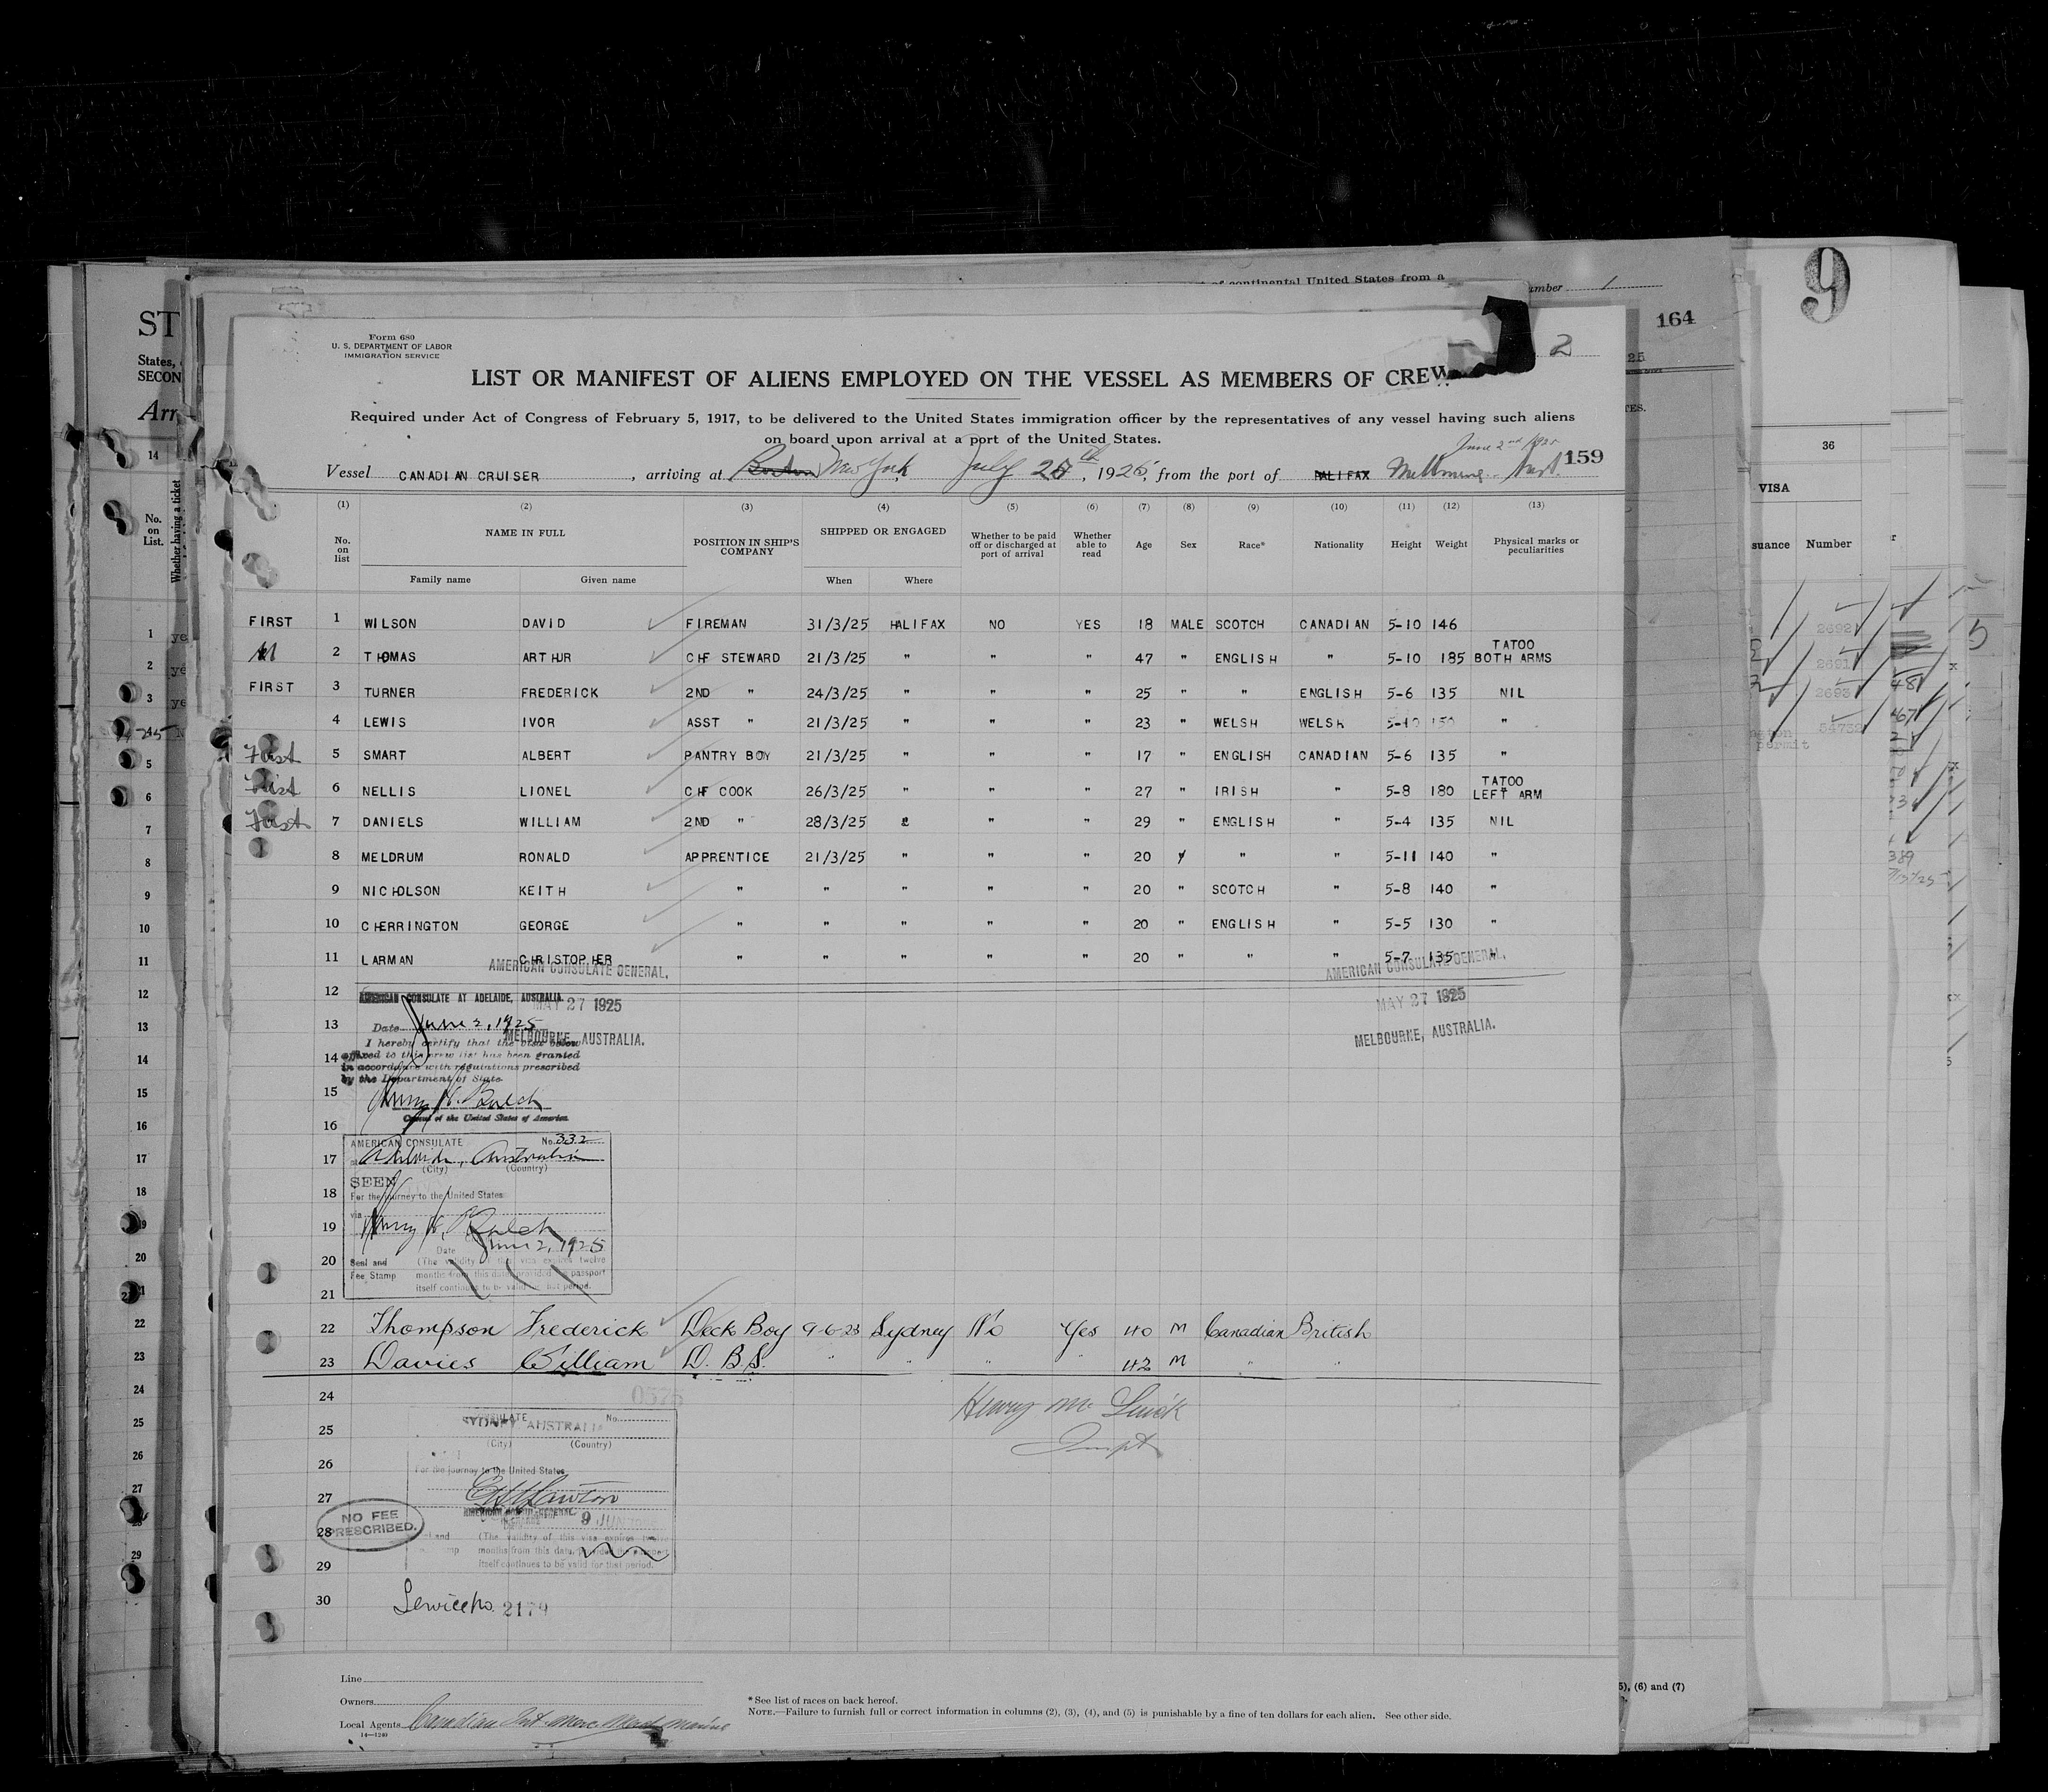 of continental United States from a
Number 1
9
164
ST
States,
SECON
Arr
Form 680
U. S. DEPARTMENT OF LABOR
IMMIGRATION SERVICE
2
LIST OR MANIFEST OF ALIENS EMPLOYED ON THE VESSEL AS MEMBERS OF CREW
Required under Act of Congress of February 5, 1917, to be delivered to the United States immigration officer by the representatives of any vessel having such aliens
on board upon arrival at a port of the United States.
June 2nd 1925
159
Vessel CANADIAN CRUISER, arriving at Boston New York, July 20th, 1925, from the port of HALIFAX Melbourne Aust.
(1) (2) (3) (4) (5) (6) (7) (8) (9) (10) (11) (12) (13)
No. on list NAME IN FULL POSITION IN SHIP'S COMPANY SHIPPED OR ENGAGED Whether to be paid off or discharged at port of arrival Whether able to read Age Sex Race* Nationality Height Weight Physical marks or peculiarities
Family name Given name When Where
FIRST 1 WILSON DAVID FIREMAN 31/3/25 HALIFAX NO YES 18 MALE SCOTCH CANADIAN 5-10 146
2 THOMAS ARTHUR CHF STEWARD 21/3/25 " " " 47 " ENGLISH " 5-10 185 TATOO BOTH ARMS
FIRST 3 TURNER FREDERICK 2ND " 24/3/25 " " " 25 " " ENGLISH 5-6 135 NIL
4 LEWIS IVOR ASST " 21/3/25 " " " 23 " WELSH WELSH 5-10 150 "
First 5 SMART ALBERT PANTRY BOY 21/3/25 " " " 17 " ENGLISH CANADIAN 5-6 135 "
First 6 NELLIS LIONEL CHF COOK 26/3/25 " " " 27 " IRISH " 5-8 180 TATOO LEFT ARM
First 7 DANIELS WILLIAM 2ND " 28/3/25 " " 29 " ENGLISH " 5-4 135 NIL
8 MELDRUM RONALD APPRENTICE 21/3/25 " " " 20 " " " 5-11 140 "
9 NICHOLSON KEITH " " " " " 20 " SCOTCH " 5-8 140 "
10 CHERRINGTON GEORGE " " " " " 20 " ENGLISH " 5-5 130 "
11 LARMAN CHRISTOPHER " " " " " 20 " " " 5-7 135 "
AMERICAN CONSULATE GENERAL,
MAY 27 1925
MELBOURNE, AUSTRALIA.
AMERICAN CONSULATE GENERAL,
MAY 27 1925
MELBOURNE, AUSTRALIA.
12
AMERICAN CONSULATE AT ADELAIDE, AUSTRALIA.
13
Date June 2, 1925
I hereby certify that the visa below
14
affixed to this crew list has been granted
in accordance with regulations prescribed
by the Department of State
15
Henry H. Balch
Consul of the United States of America.
16
AMERICAN CONSULATE No. 332
17
at Adelaide, Australia
(City) (Country)
SEEN
18
For the journey to the United States
via
19
Henry H. Balch
Date June 2, 1925
20
Seal and Fee Stamp
(The validity of this visa expires twelve
months from this date provided the passport
itself continues to be valid for that period.
21
22 Thompson Frederick Deck Boy 9-6-25 Sydney No Yes 40 M Canadian British
23 Davies William D. B. S. " " " " 42 M " "
24
0575
Henry Mc
CONSULATE No.
25
SYDNEY AUSTRALIA
(City) (Country)
Inspt
26
For the journey to the United States
27
E M Lawton
9 JUN
28
NO FEE
PRESCRIBED.
(The validity of this visa expires twelve
months from this date, provided the passport
itself continues to be valid for that period.
29
30
Service No. 2179
Line
Owners
Local Agents Canadian Merc Marine
14—1240
*See list of races on back hereof.
NOTE.—Failure to furnish full or correct information in columns (2), (3), (4), and (5) is punishable by a fine of ten dollars for each alien. See other side.
5), (6) and (7)
14
No. on List.
Whether having a ticket
1
2
3
4
5
6
7
8
9
10
11
12
13
14
15
16
17
18
19
20
21
22
23
24
25
26
27
29
36
VISA
suance Number
2692
2691
2693
54732
permit